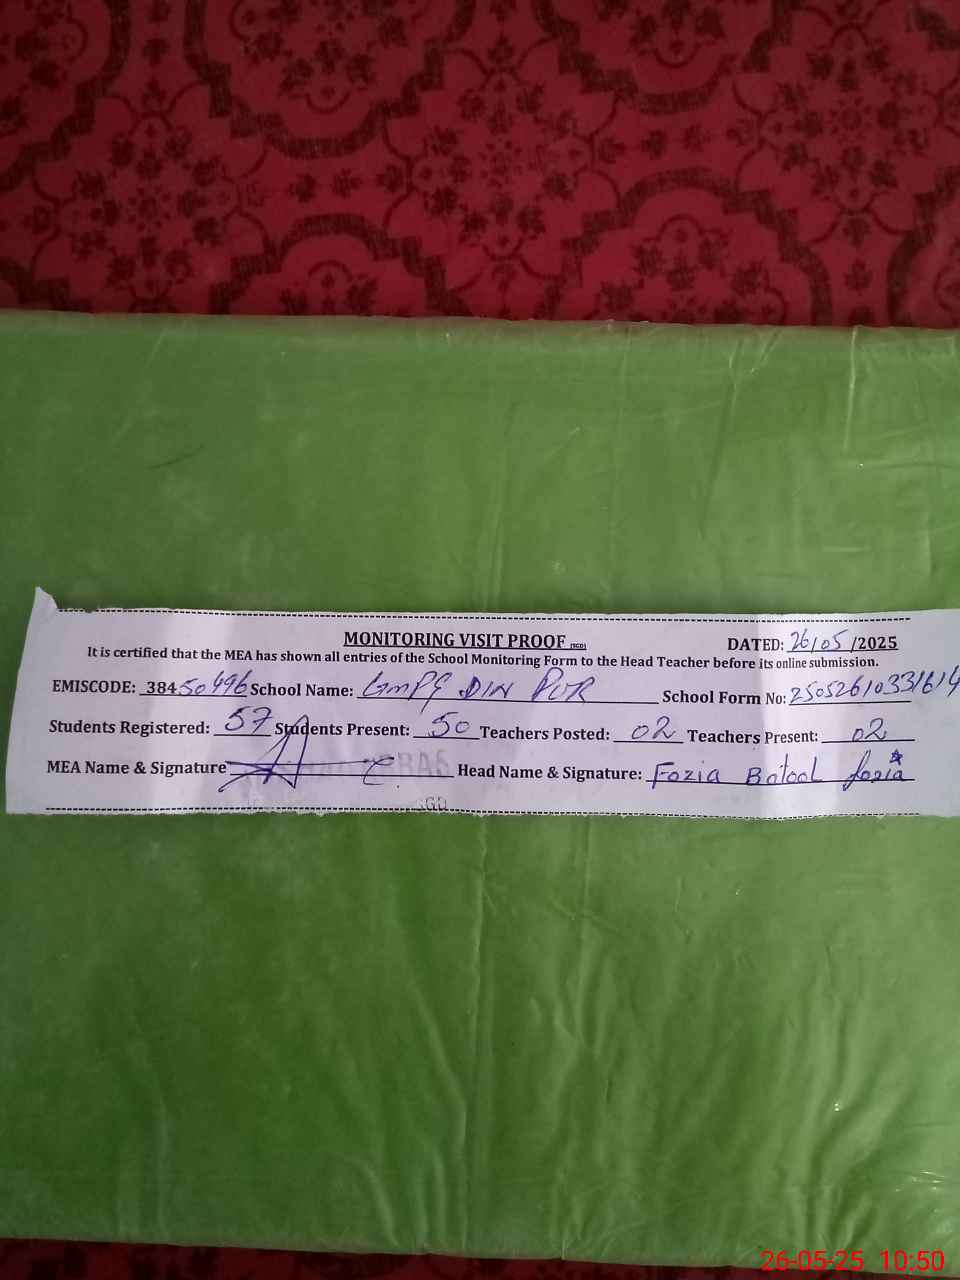 MONITORING VISIT PROOF (SGD)
DATED: 26/05/2025
It is certified that the MEA has shown all entries of the School Monitoring Form to the Head Teacher before its online submission.
EMISCODE: 38450496 School Name: GMPS DIN PUR School Form No: 25052610331614
Students Registered: 57 Students Present: 50 Teachers Posted: 02 Teachers Present: 02
MEA Name & Signature Head Name & Signature: Fozia Batool fozia
26-05-25 10:50